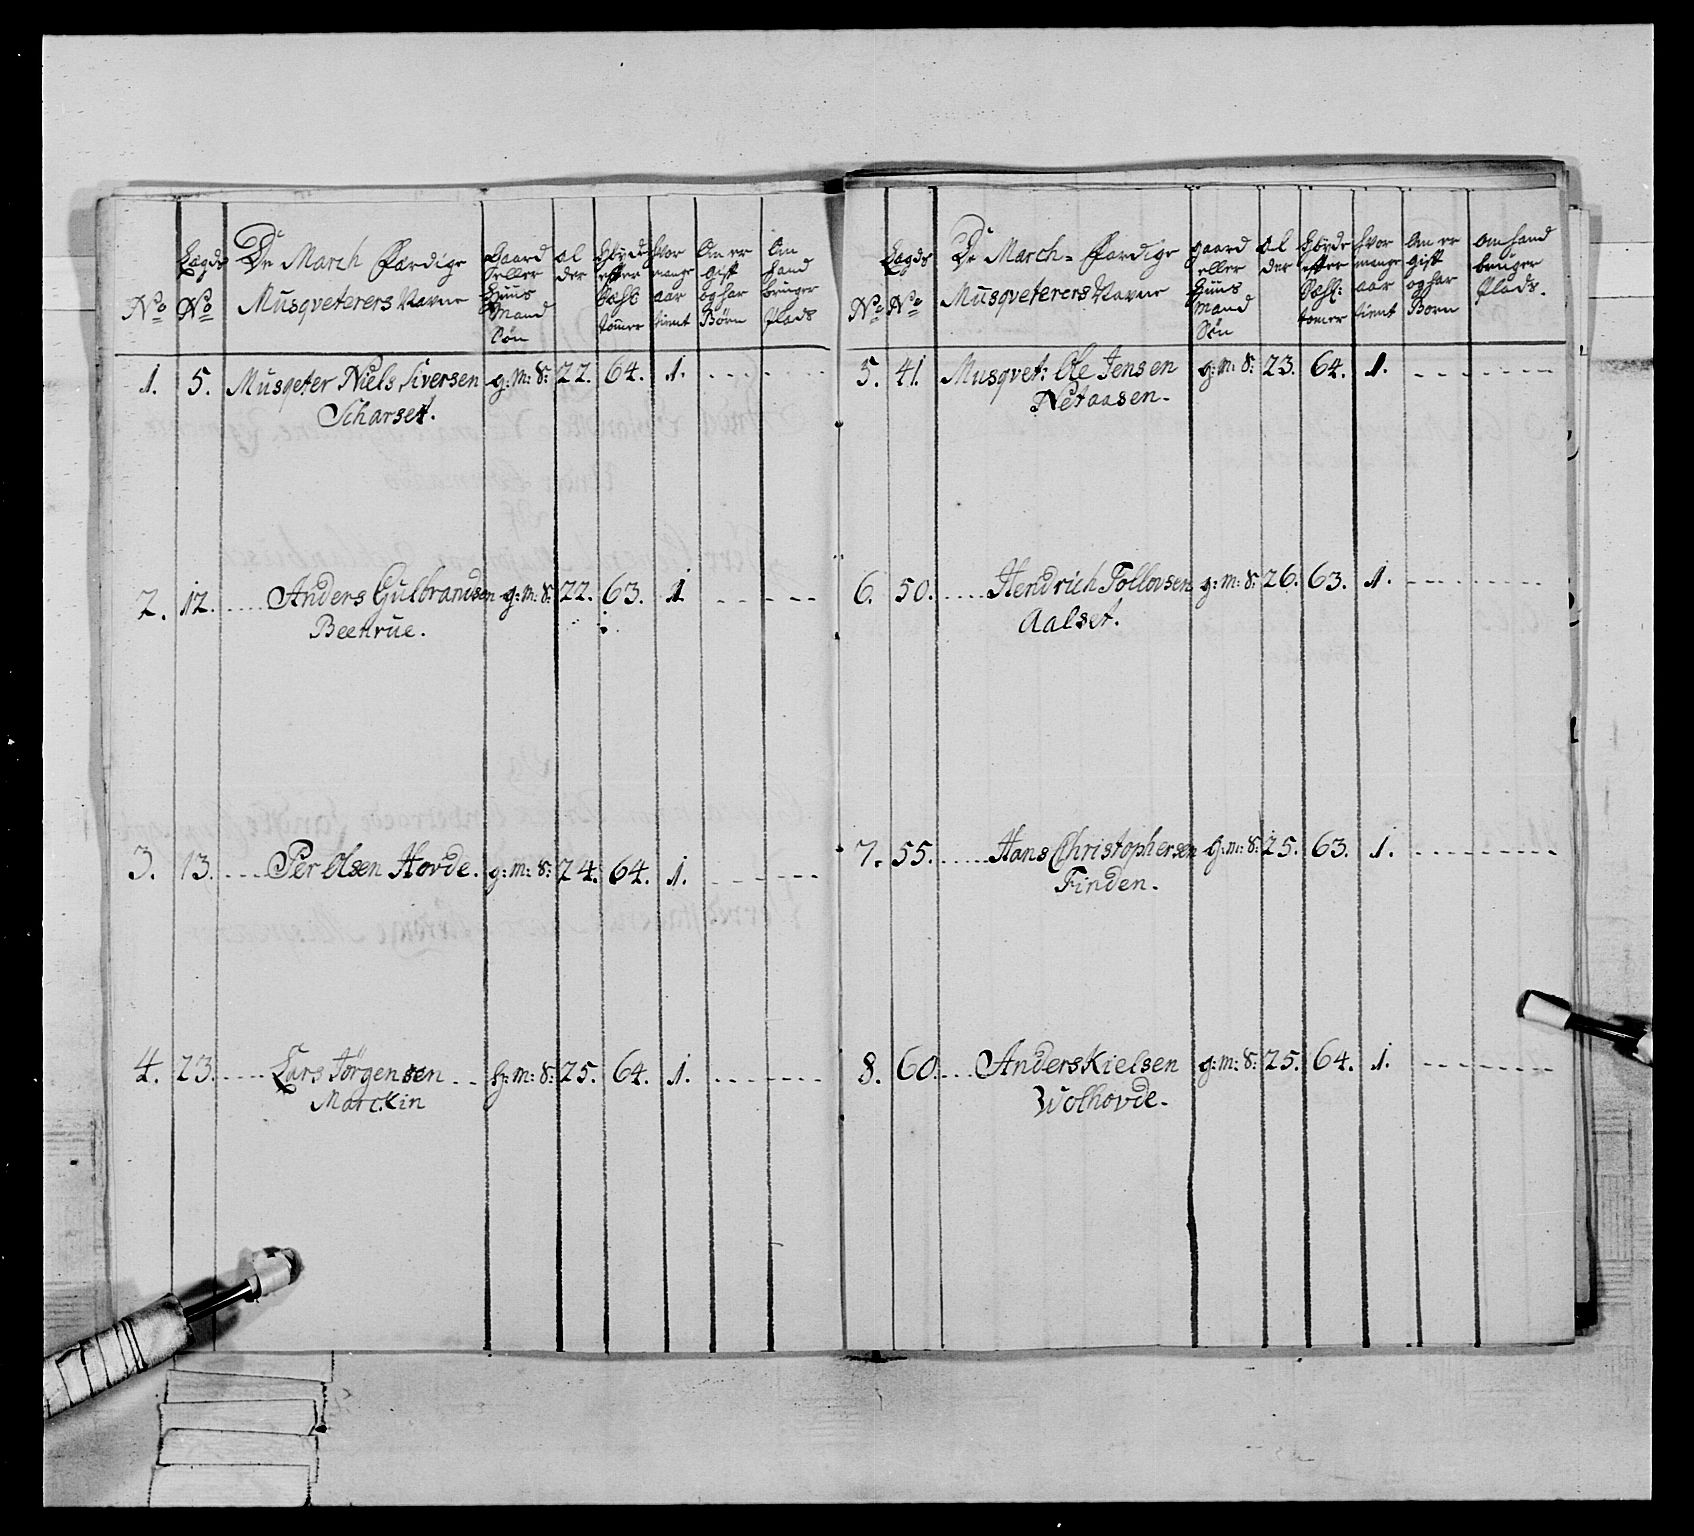 No
Lægds No
De March Færdige
Musqveterers Navne
Gaard
eller
Huus
Mand
Søn
al
der
Høyde
efter
tomer
Hvor
mange
aar
tient
Om er
gift
og har
Børn
Om
hand
bruger
Plads
1. 5. Musqeter Niels Siversen g: m: s: 22. 64. 1. - - - - - -
Scharset.
2. 12. .... Anders Gulbrandsen g: m: s: 22. 63. 1 - - - -
Beenrue.
3. 13. .... Per Olsen Hovde. g: m: s: 24. 64. 1. - - - - -
4. 23. .... Lars Jørgensen .. h: m: s: 25. 64. 1. - - - - - -
Marckin
No
Lægds No
De March- Færdige
Musqveterers Navne
gaard
eller
Huus
Mand
Søn
al
der
Høyde
efter
tomer
hvor
mange
aar
tient
Om er
gift
og har
Born
om hand
bruger
Plads.
5. 41. Musqvet: Ole Jensen g: m: s: 23. 64. 1. - - - - - - -
Netaasen.
6. 50. .... Hendrich Tollovsen g: m: s: 26. 63. 1. - - - - - - -
Aalset.
7. 55. .... Hans Christophersen g: m: s: 25. 63. 1. - - - - - - -
Finden.
8. 60. .... Anders Kielsen g: m: s: 25. 64. 1. - - - - - - -
Wolhovde.